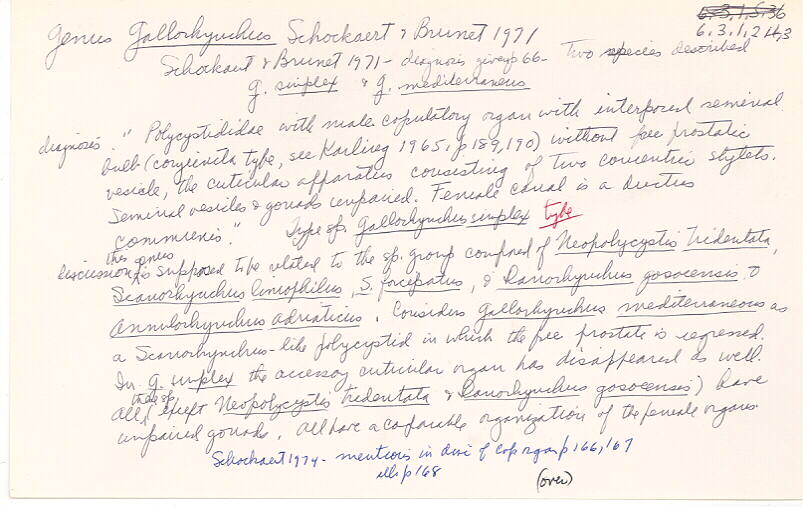 6.3.1.5.36
6.3.1.2 4.3
Genus Gallorhynchus Schockaert & Brunet 1971
Schockaert & Brunet 1971 - diagnosis given p 66 - Two species described
G. simplex & G. mediterraneus
diagnosis: "Polycystididae with male copulatory organ with interposed seminal
bulb (coryinita type, see Karling 1965, p 189, 190) without free prostatic
vesicle, the cuticular apparatus consisting of two concentric stylets.
Seminal vesicles & gonads unpaired. Female canal is a ductus
communis." Type sp. Gallorhynchus simplex type
this genus
discussion: is supposed to be related to the sp. group composed of Neopolycystis tridentata,
Scanorhynchus limophilus, S. forcipatus, & Danorhynchus gosoeensis, &
Annulorhynchus adriaticus. Considers Gallorhynchus mediterraneus as
a Scanorhynchus-like polycystid in which the free prostate is regressed.
In G. simplex the accessory cuticular organ has disappeared as well.
these sp.
All (except Neopolycystis tridentata & Danorhynchus gosoeensis) have
unpaired gonads. All have a comparable organization of the female organs
Schockaert 1974 - mentions in disc of cop organ p 166, 167
ills p 168
(over)